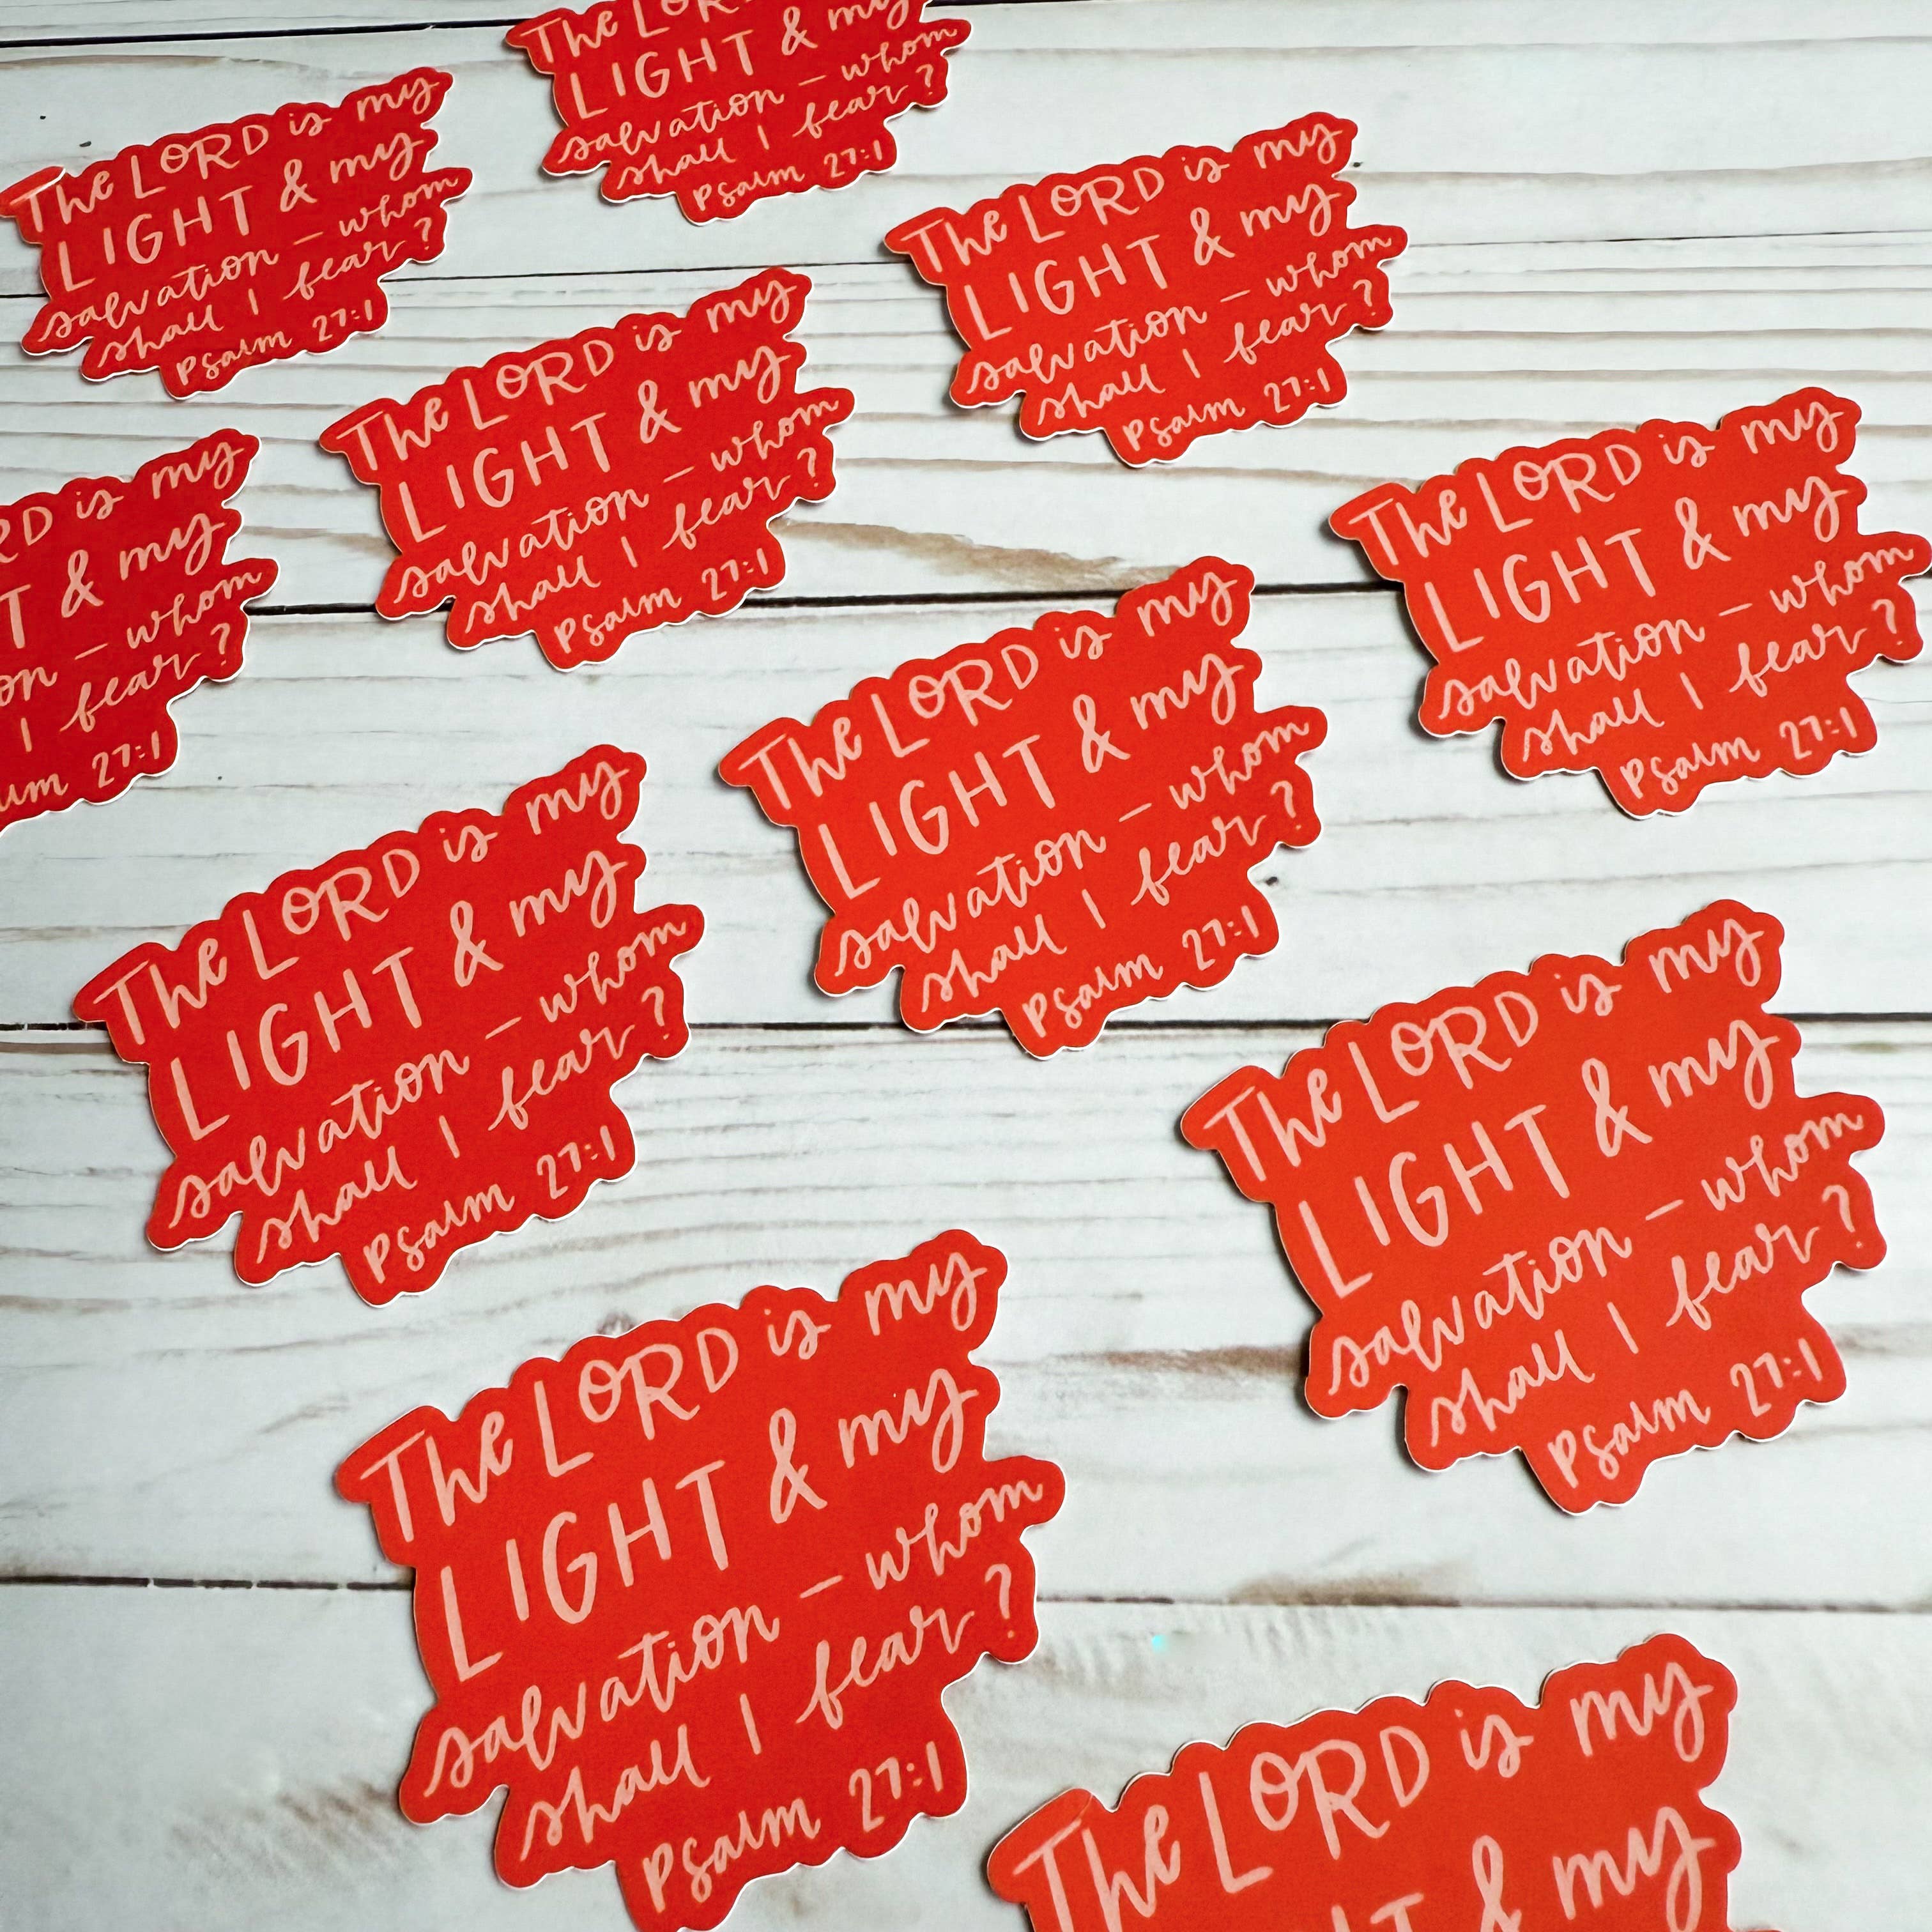 The
LIGHT & my
salvation – whom
shall I fear?
Psalm 27:1
The LORD is my
LIGHT & my
salvation – whom
shall I fear?
Psalm 27:1
The LORD is my
LIGHT & my
salvation – whom
shall I fear?
Psalm 27:1
The LORD is my
LIGHT & my
salvation – whom
shall I fear?
Psalm 27:1
The LORD is my
LIGHT & my
salvation – whom
shall I fear?
Psalm 27:1
is my
& my
– whom
I fear?
27:1
The LORD is my
LIGHT & my
salvation – whom
shall I fear?
Psalm 27:1
The LORD is my
LIGHT & my
salvation – whom
shall I fear?
Psalm 27:1
The LORD is my
LIGHT & my
salvation – whom
shall I fear?
Psalm 27:1
The LORD is my
LIGHT & my
salvation – whom
shall I fear?
Psalm 27:1
The LORD is my
& my